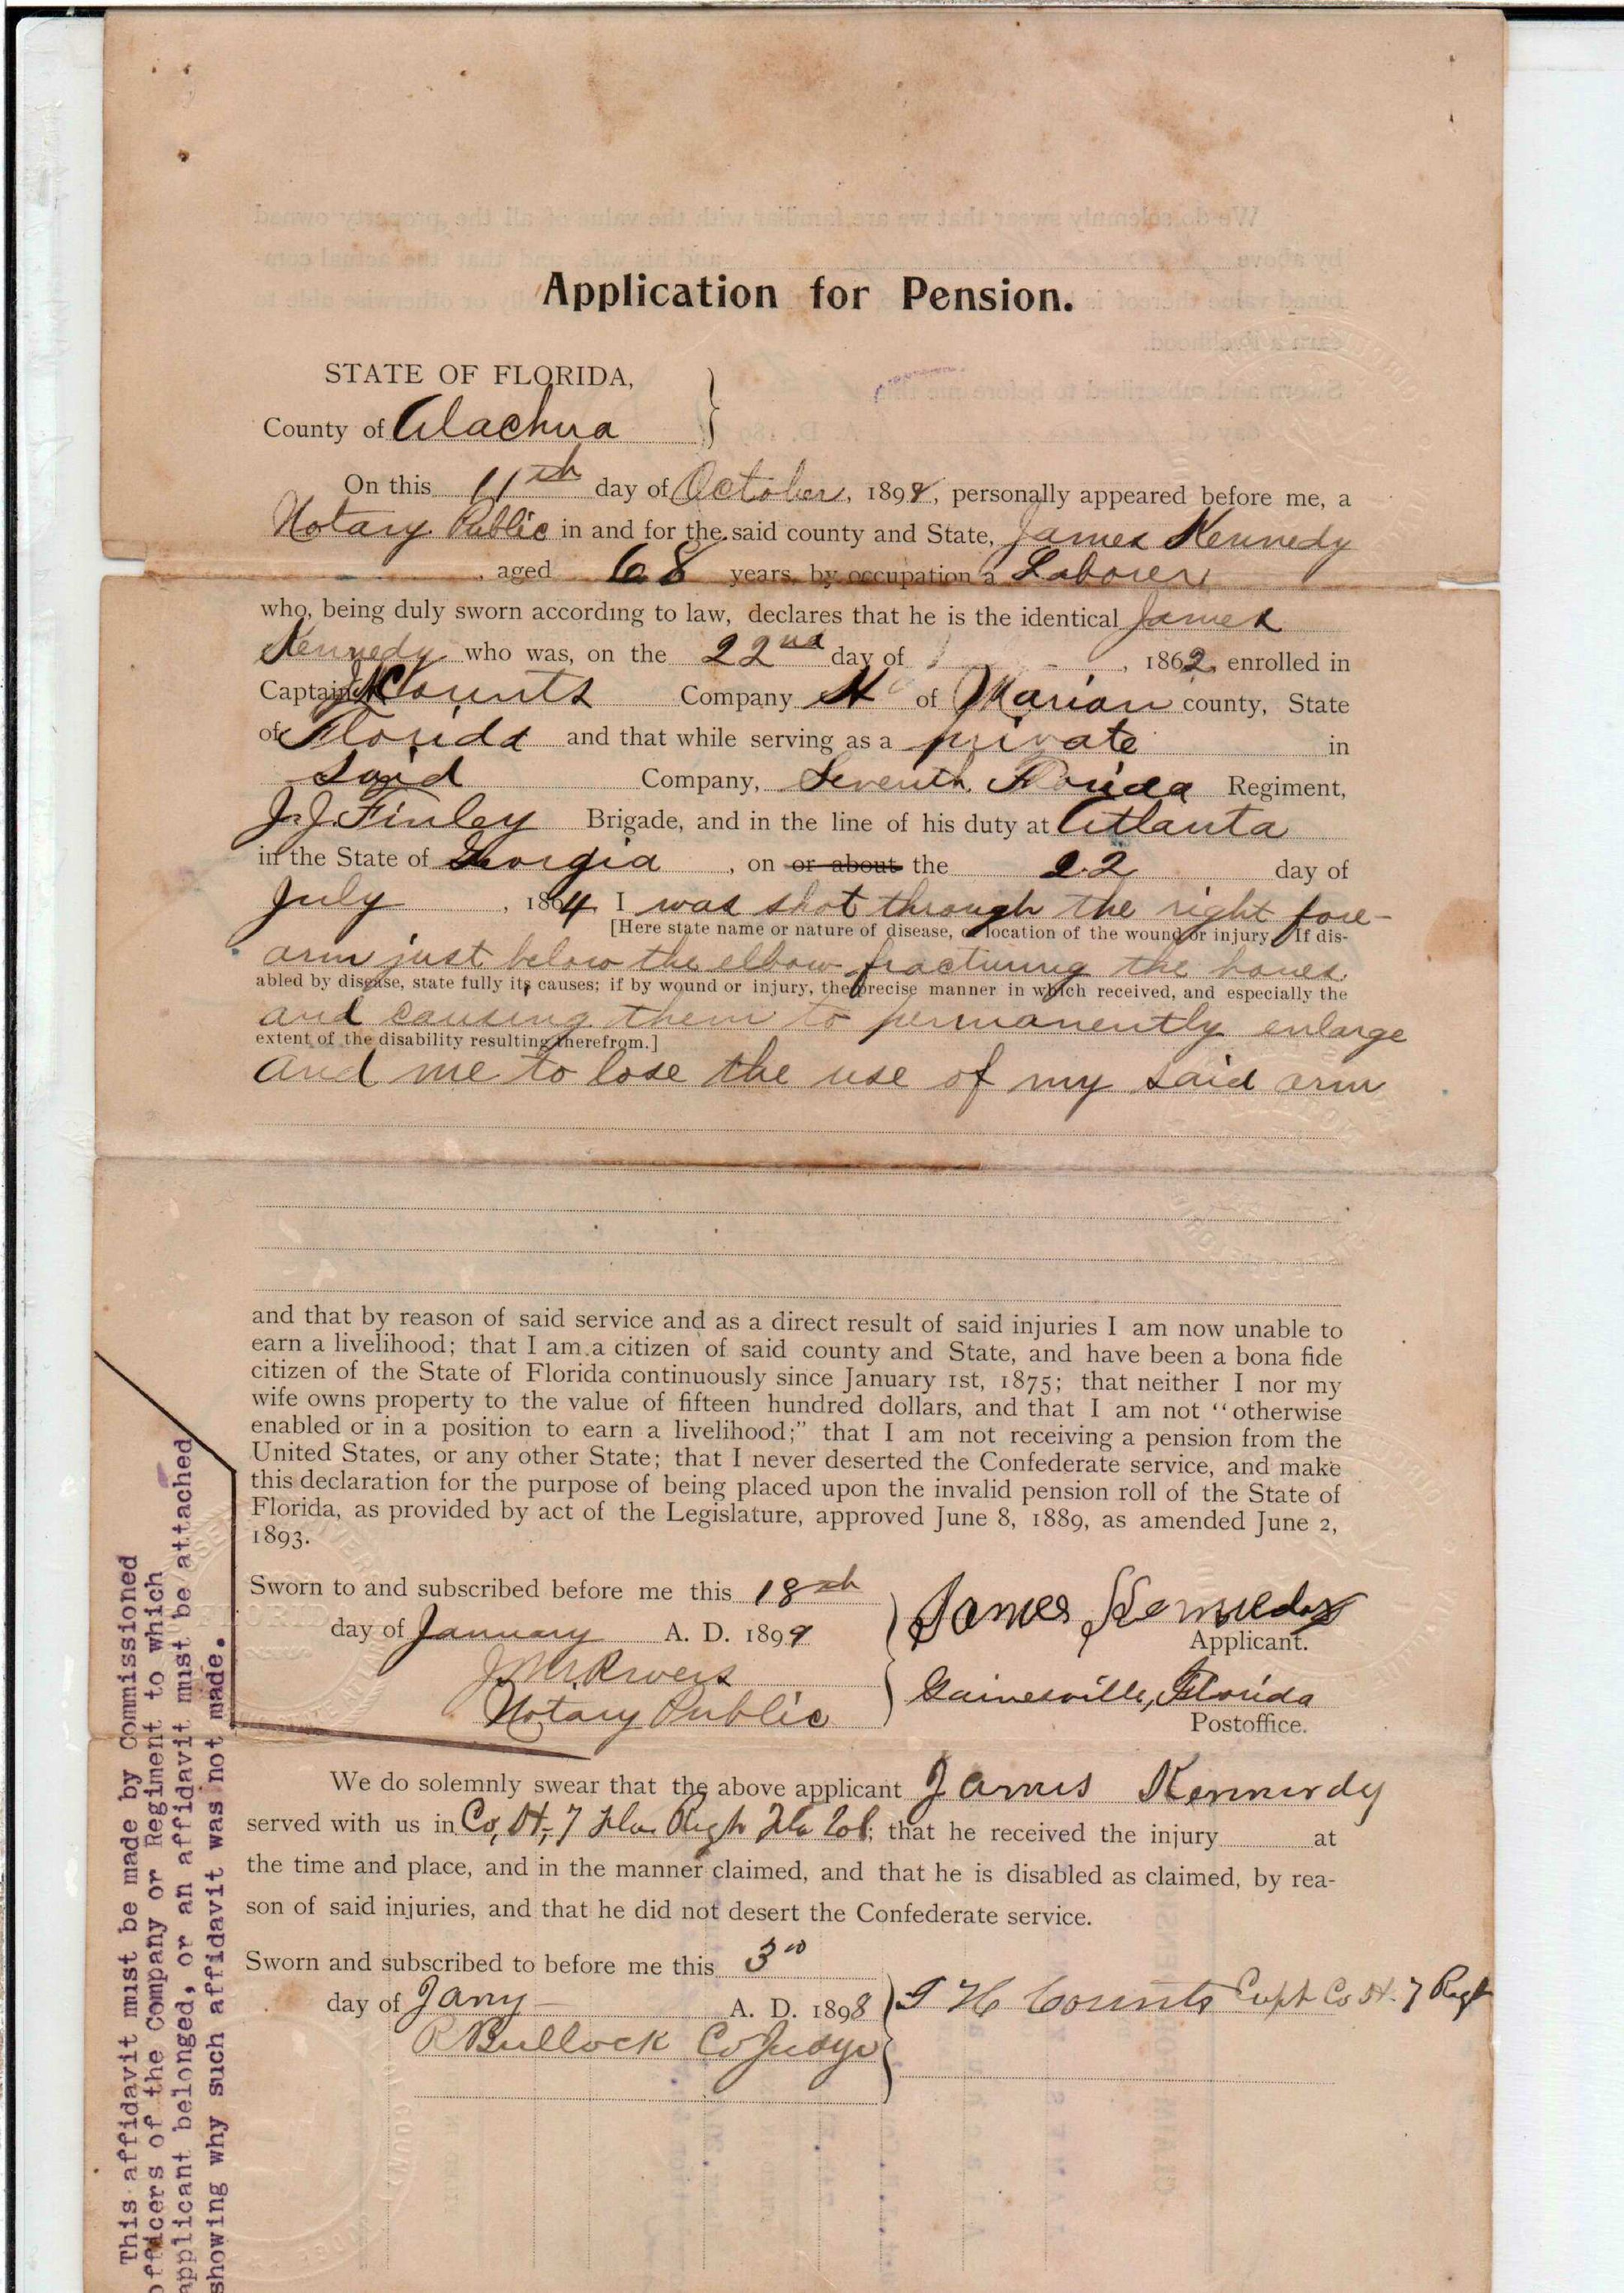 Application for Pension.
STATE OF FLORIDA,
County of Alachua
On this 11th day of October, 1898, personally appeared before me, a
Notary Public in and for the said county and State, James Kennedy
, aged 68 years, by occupation a Laborer,
who, being duly sworn according to law, declares that he is the identical James
Kennedy who was, on the 22nd day of , 1862, enrolled in
Captain Counts Company H of Marion county, State
of Florida and that while serving as a private in
said Company, Seventh Florida Regiment,
J. J. Finley Brigade, and in the line of his duty at Atlanta
in the State of Georgia , on or about the 22 day of
July , 1864 I was shot through the right fore-
[Here state name or nature of disease, or location of the wound or injury. If dis-
arm just below the elbow fracturing the bones
abled by disease, state fully its causes; if by wound or injury, the precise manner in which received, and especially the
and causing them to permanently enlarge
extent of the disability resulting therefrom.]
and me to lose the use of my said arm
and that by reason of said service and as a direct result of said injuries I am now unable to
earn a livelihood; that I am a citizen of said county and State, and have been a bona fide
citizen of the State of Florida continuously since January 1st, 1875; that neither I nor my
wife owns property to the value of fifteen hundred dollars, and that I am not "otherwise
enabled or in a position to earn a livelihood;" that I am not receiving a pension from the
United States, or any other State; that I never deserted the Confederate service, and make
this declaration for the purpose of being placed upon the invalid pension roll of the State of
Florida, as provided by act of the Legislature, approved June 8, 1889, as amended June 2,
1893.
Sworn to and subscribed before me this 18th
day of January A. D. 1899
James Kennedy
Applicant.
J M Rivers
Notary Public
Gainesville, Florida
Postoffice.
We do solemnly swear that the above applicant James Kennerdy
served with us in Co, H, 7 Fla Regt Fla Vol; that he received the injury at
the time and place, and in the manner claimed, and that he is disabled as claimed, by rea-
son of said injuries, and that he did not desert the Confederate service.
Sworn and subscribed to before me this 3rd
day of Jany A. D. 1898
Counts Capt Co H. 7 Regt
R Bullock Co Judge
This affidavit must be made by Commissioned
officers of the Company or Regiment to which
applicant belonged, or an affidavit must be attached
showing why such affidavit was not made.